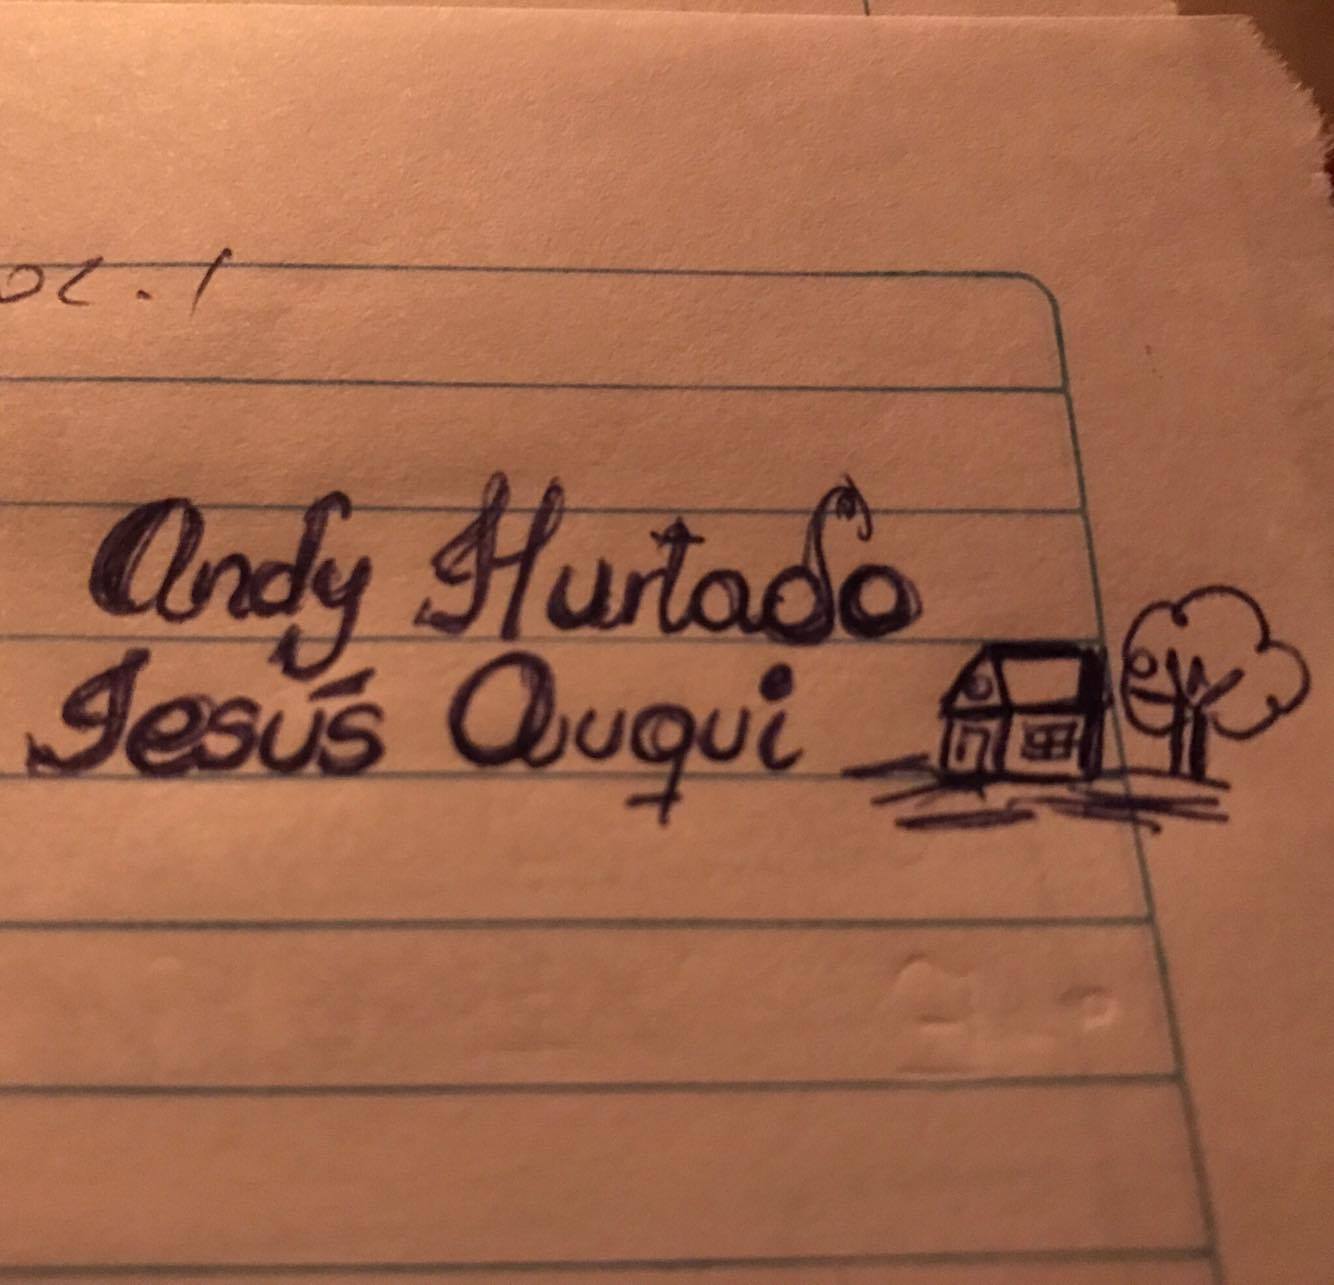 Andy Hurtado
Jesús Auqui